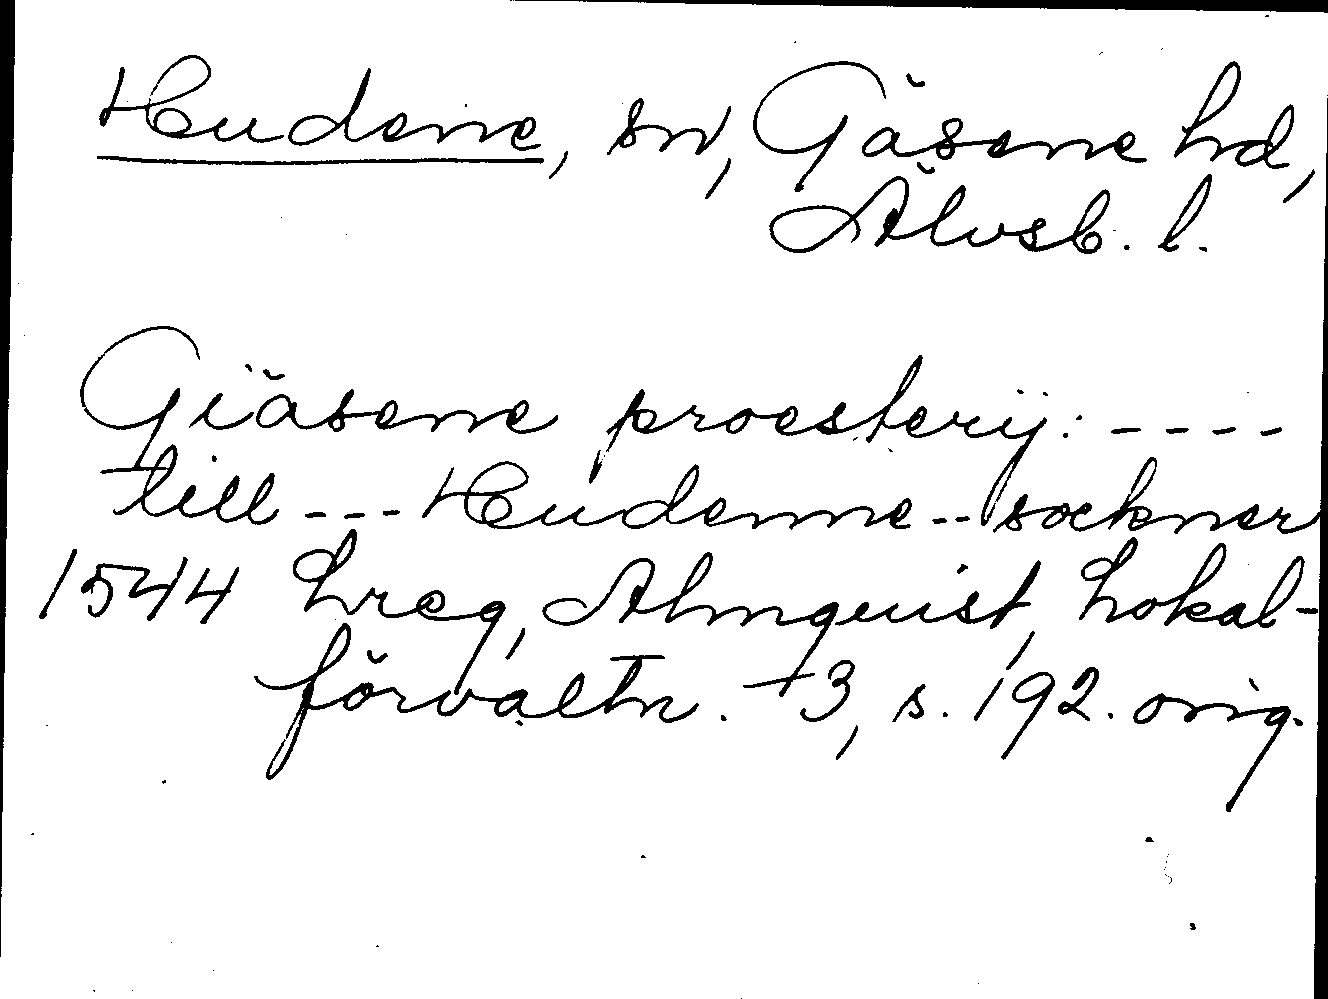 Hudene, sn, Gäsene hd,
Älvsb. l.
Giäsene proesterij: ----
till --- Hudenne -- sockner
1544 hreg, Almquist, Lokal-
förvaltn. +3, s. 192. orig.